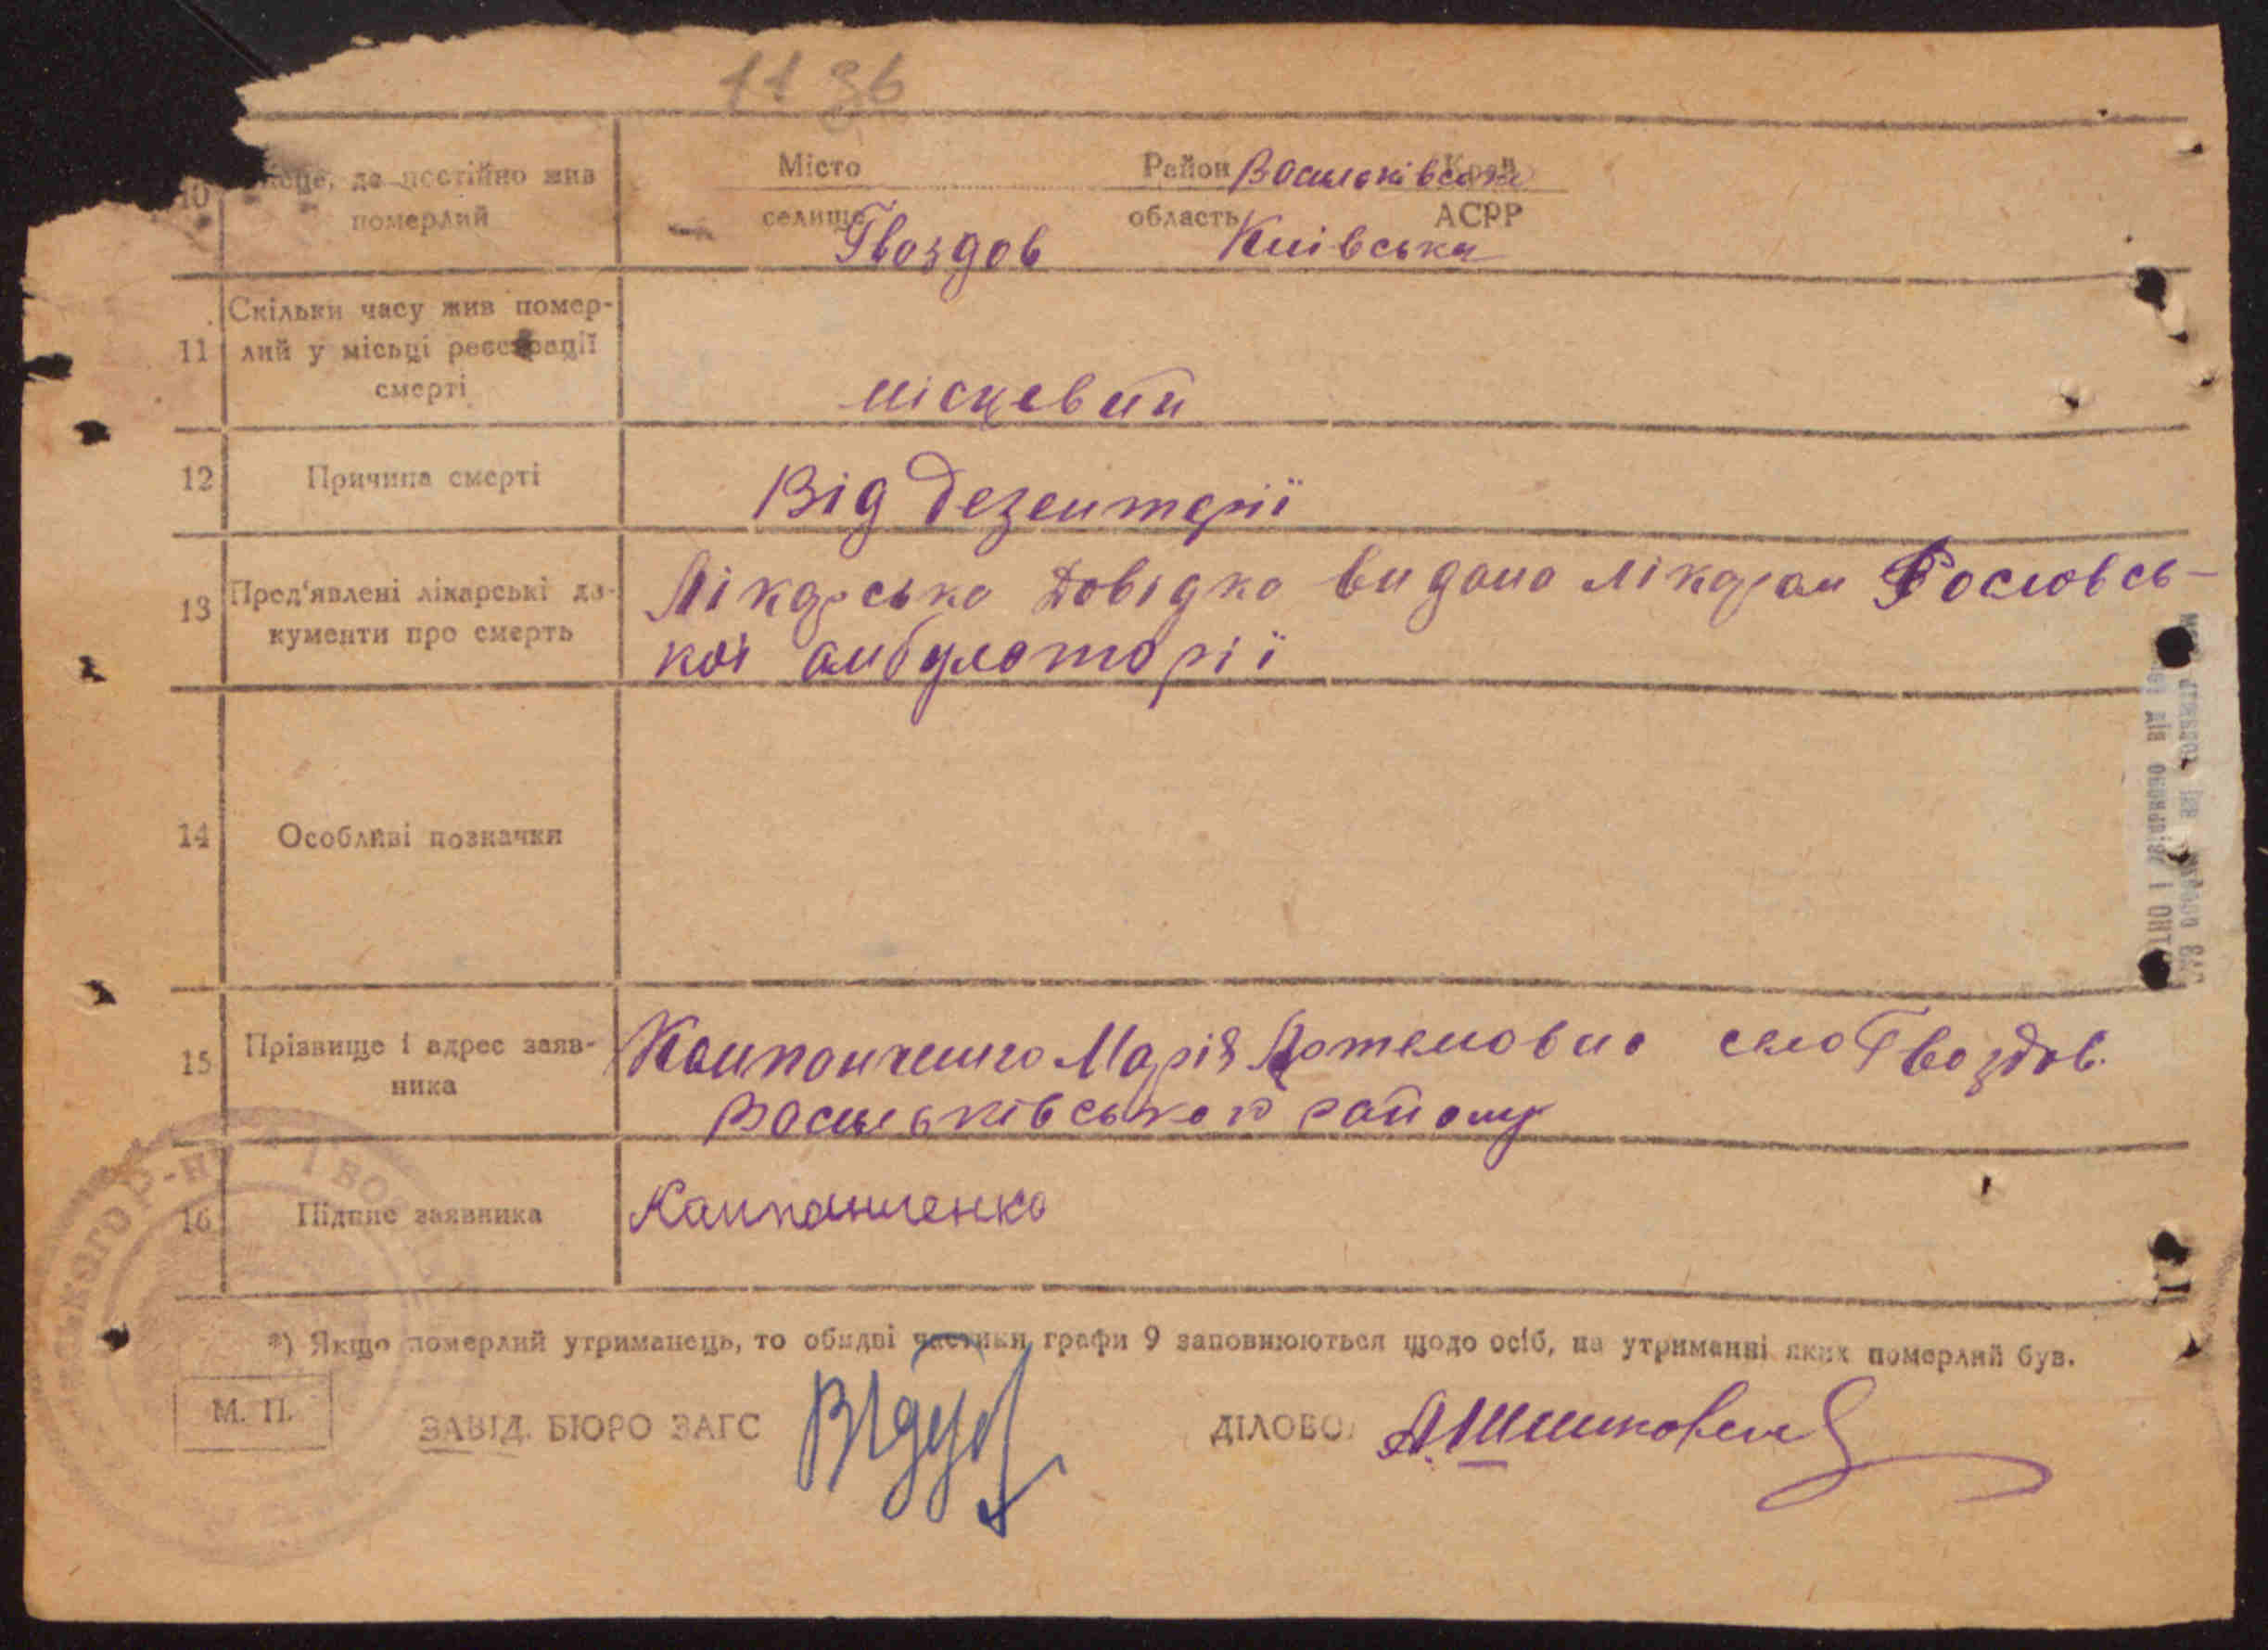 11 36
10
де постійно жив
померлий
Місто
Район Васильківська
Край
селище Гвоздов
область Київська
АСРР
11
Скільки часу жив помер-
лий у місьці реєстрації
смерті
місцевий
12 Причина смерті
Від дезентерії
13
Пред'явлені лікарські до-
кументи про смерть
Лікарська довідка видана лікарам Рословсь-
кої амбулаторії
14 Особливі позначки
15
Прізвище і адрес заяв-
ника
Марія Артемовна село Гвоздов.
Васильківського району
16 Підпис заявника
*) Якщо померлий утриманець, то обидві частини графи 9 заповнюються щодо осіб, на утриманні яких померлий був.
М. П.
ЗАВІД. БЮРО ЗАГС
ДІЛОВОД